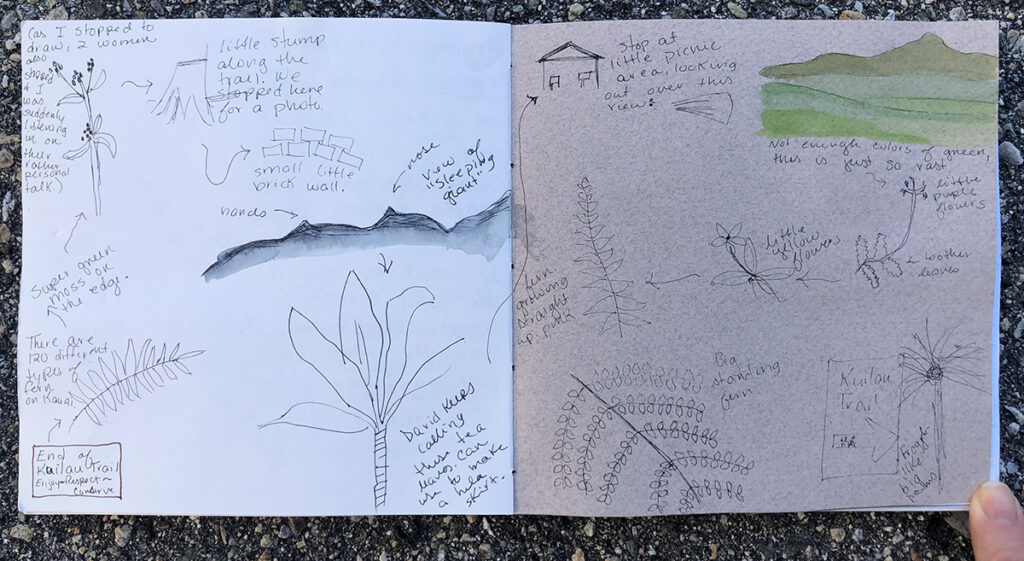 (as I stopped to
draw, 2 women
also
stopped
& I
was
suddenly
listening
in on
their rather
personal
talk.)
little stump
along the
trail. We
stopped here
for a photo.
small little
brick wall.
nose
view of
"sleeping
giant"
hands
Super green
moss on
the edge.
There are
120 different
types of
fern
on Kauai
End of
Kuilau Trail
Enjoy~Respect~
Conserve
David keeps
calling
these tea
leaves. Can
use to make
a hula
skirt.
stop at
little picnic
area, looking
out over this
view:
Not enough colors of green,
this is just so vast.
little
purple
flowers
little
yellow
flowers
leaves
fern
growing
straight
up.
Big
standing
fern
Kuilau
Trail
big
palms